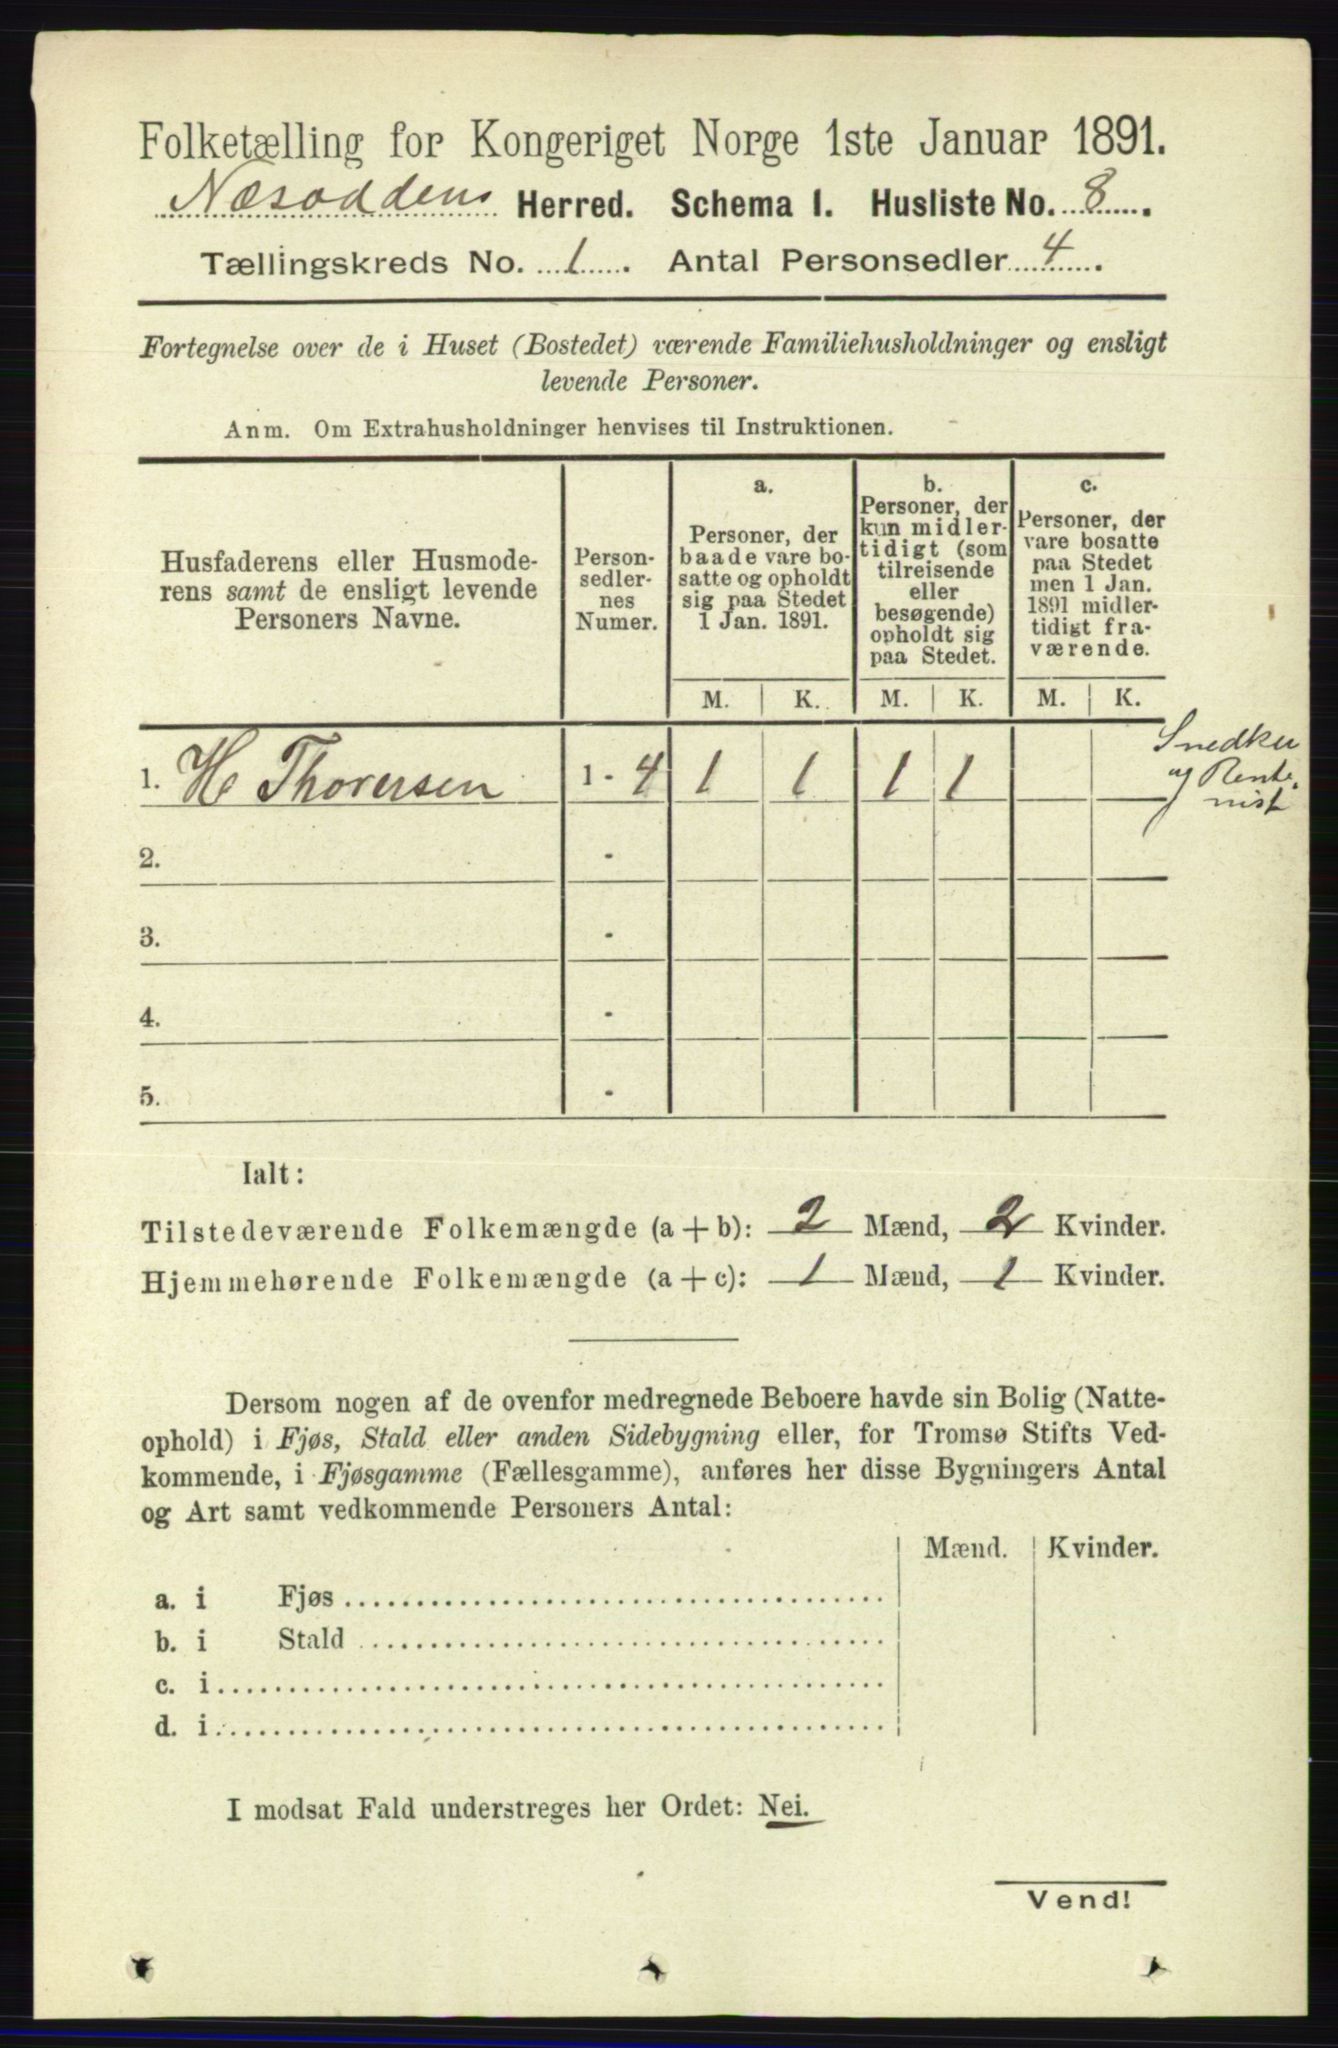 Folketælling for Kongeriget Norge 1ste Januar 1891.
Næsoddens Herred. Schema I. Husliste No. 8.
Tællingskreds No. 1. Antal Personsedler 4.
Fortegnelse over de i Huset (Bostedet) værende Familiehusholdninger og ensligt
levende Personer.
Anm. Om Extrahusholdninger henvises til Instruktionen.
Husfaderens eller Husmode-
rens samt de ensligt levende
Personers Navne.
Person-
sedler-
nes
Numer.
a.
Personer, der
baade vare bo-
satte og opholdt
sig paa Stedet
1 Jan. 1891.
b.
Personer, der
kun midler-
tidigt (som
tilreisende
eller
besøgende)
opholdt sig
paa Stedet.
c.
Personer, der
vare bosatte
paa Stedet
men 1 Jan.
1891 midler-
tidigt fra-
værende.
M. K. M. K. M. K.
1. H Thorersen 1 - 4 1 1 1 1
Snedker
og Rente-
nist
2. -
3. -
4. -
5. -
Ialt:
Tilstedeværende Folkemængde (a + b): 2 Mænd, 2 Kvinder.
Hjemmehørende Folkemængde (a + c): 1 Mænd, 1 Kvinder.
Dersom nogen af de ovenfor medregnede Beboere havde sin Bolig (Natte-
ophold) i Fjøs, Stald eller anden Sidebygning eller, for Tromsø Stifts Ved-
kommende, i Fjøsgamme (Fællesgamme), anføres her disse Bygningers Antal
og Art samt vedkommende Personers Antal:
Mænd. Kvinder.
a. i Fjøs
b. i Stald
c. i
d. i
I modsat Fald understreges her Ordet: Nei.
Vend!